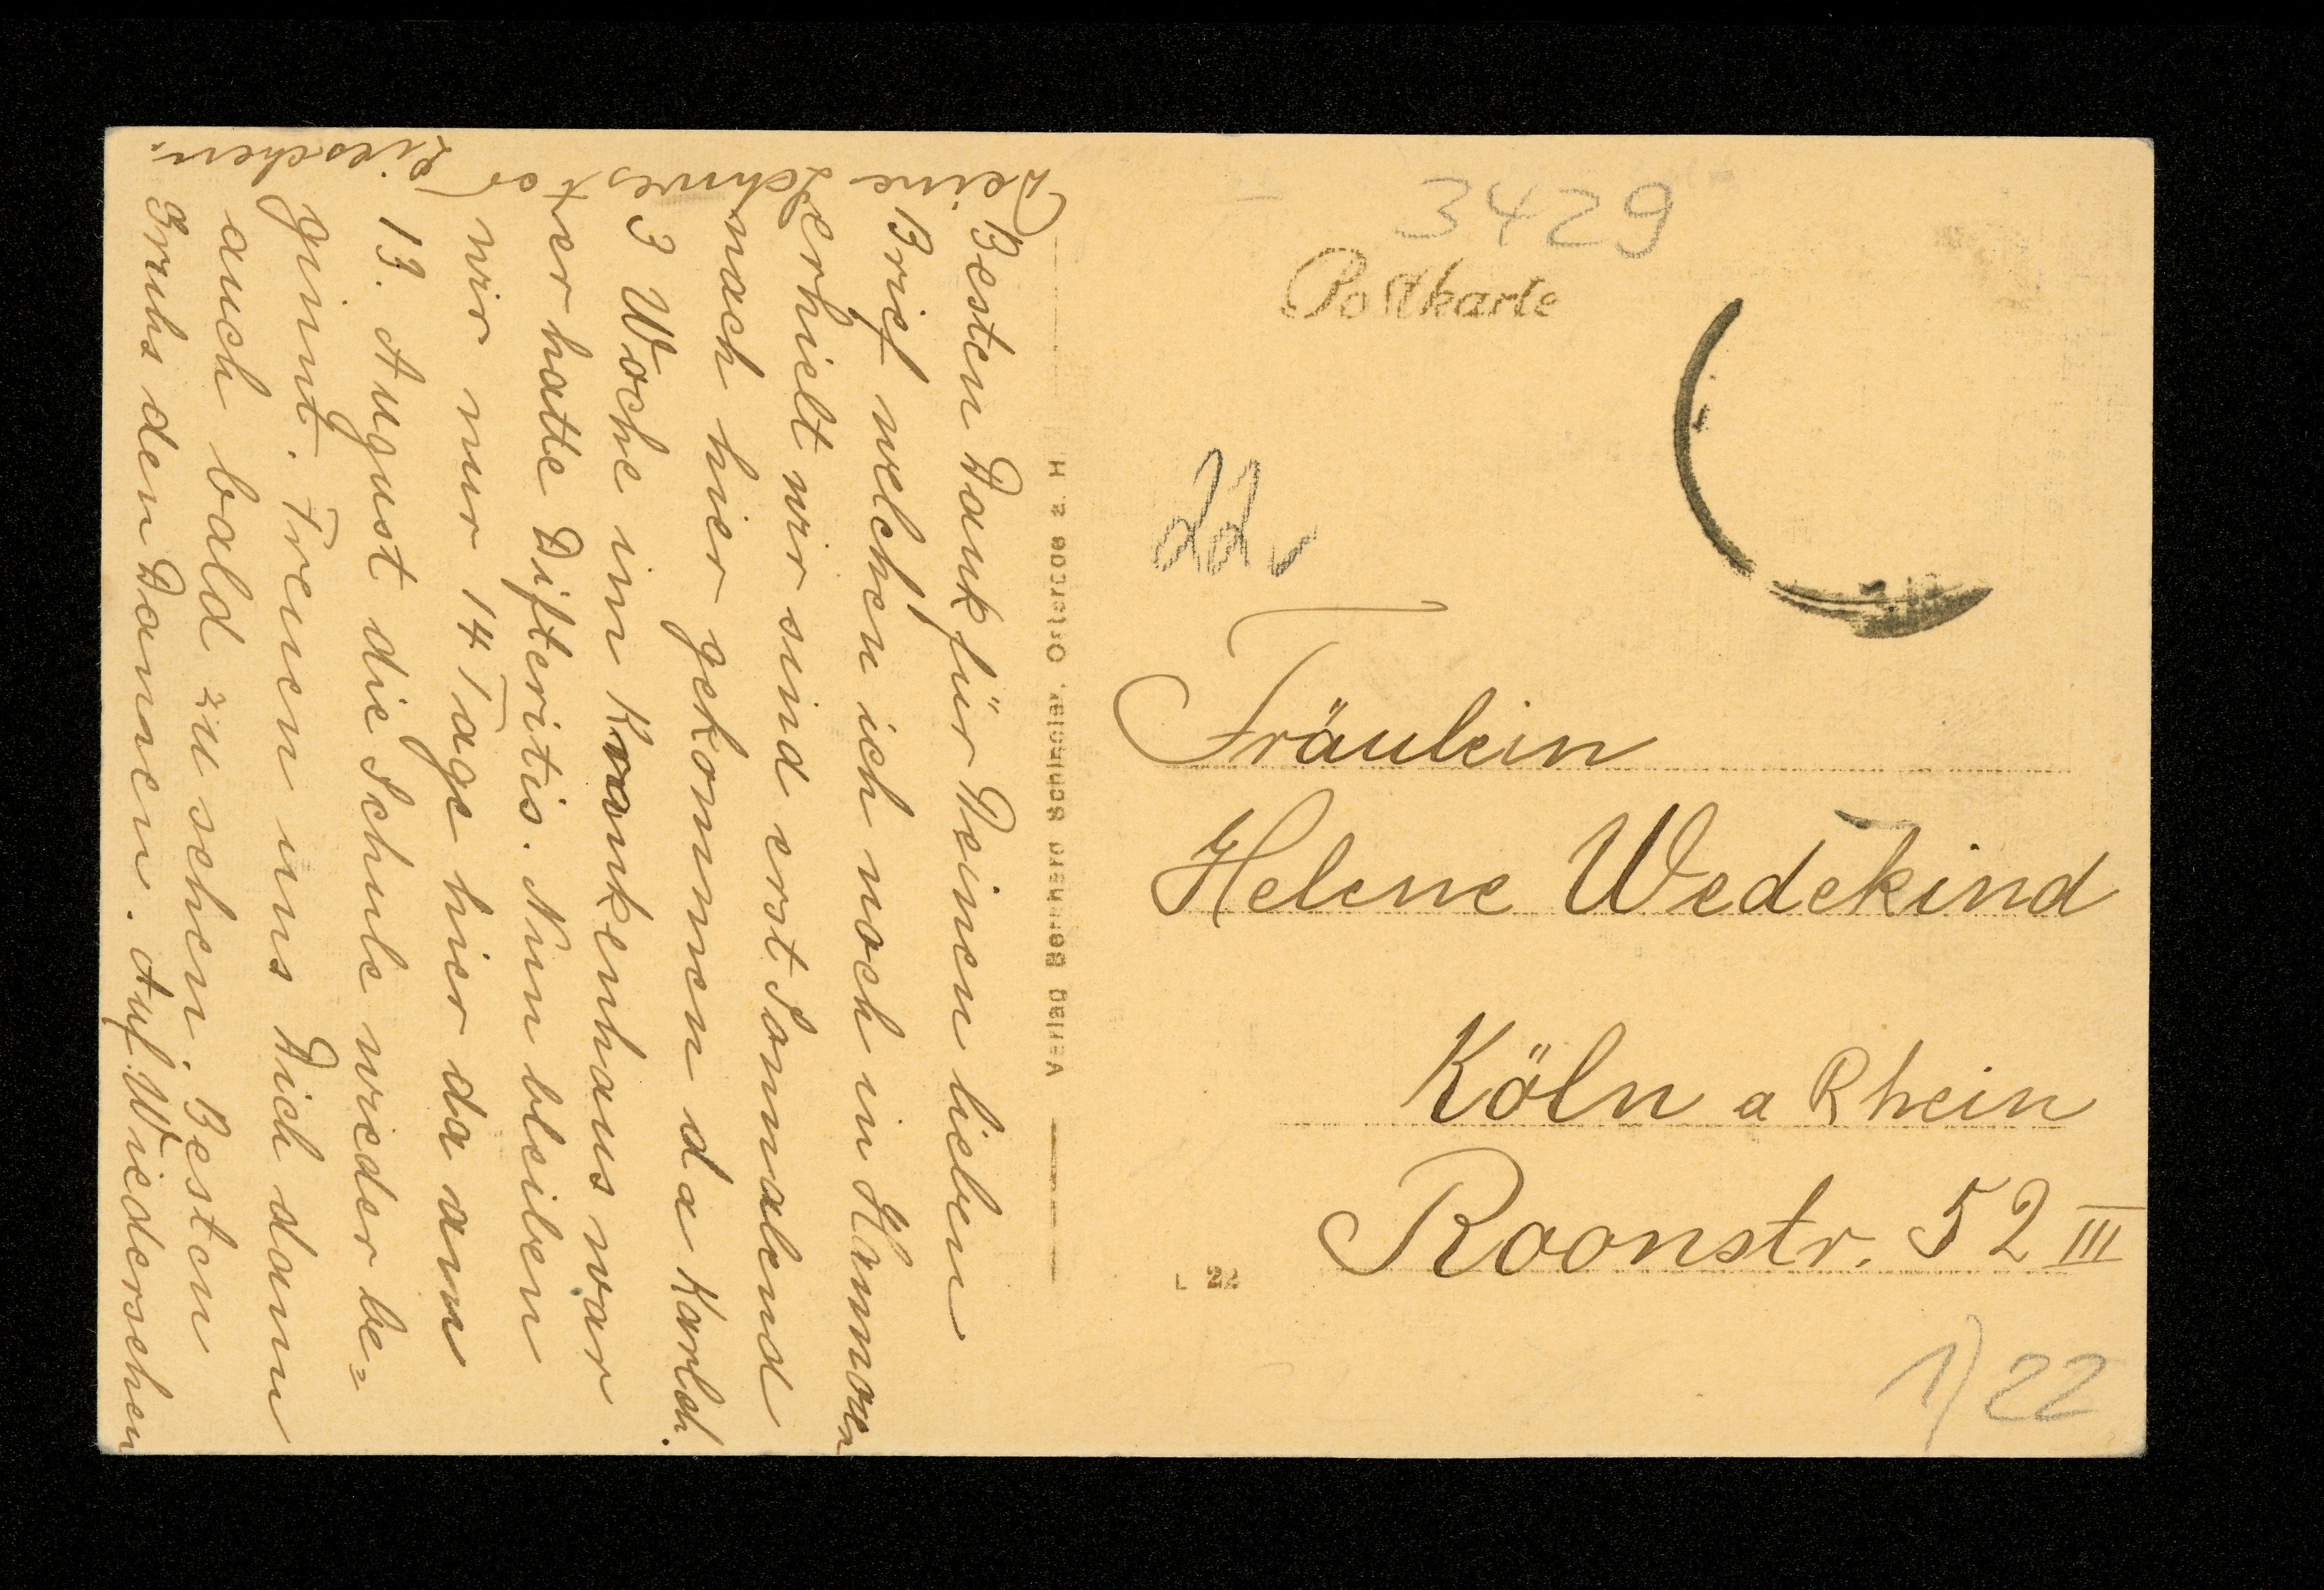 3429
Postkarte
22
Fräulein
Helene Wedekind
Köln a Rhein
Roonstr. 52 III
L 22
1) 22
Verlag Bernhard Schinkler, Ostercde a. H
Besten Dank für Deinen lieben
Brief welchen ich noch in Hannover
erhielt wir sind erst Sonnabend
nach hier gekommen da Karlch.
3 Woche im Krankenhaus war
er hatte Difteritis. Nun bleiben
wir nur 14 Tage hier da am
13. August die Schule wieder be=
ginnt. Freuen uns Dich dann
auch bald zu sehen. Besten
Gruhs den Damen. Auf Wiedersehen
Deine Schwester
Lieschen.